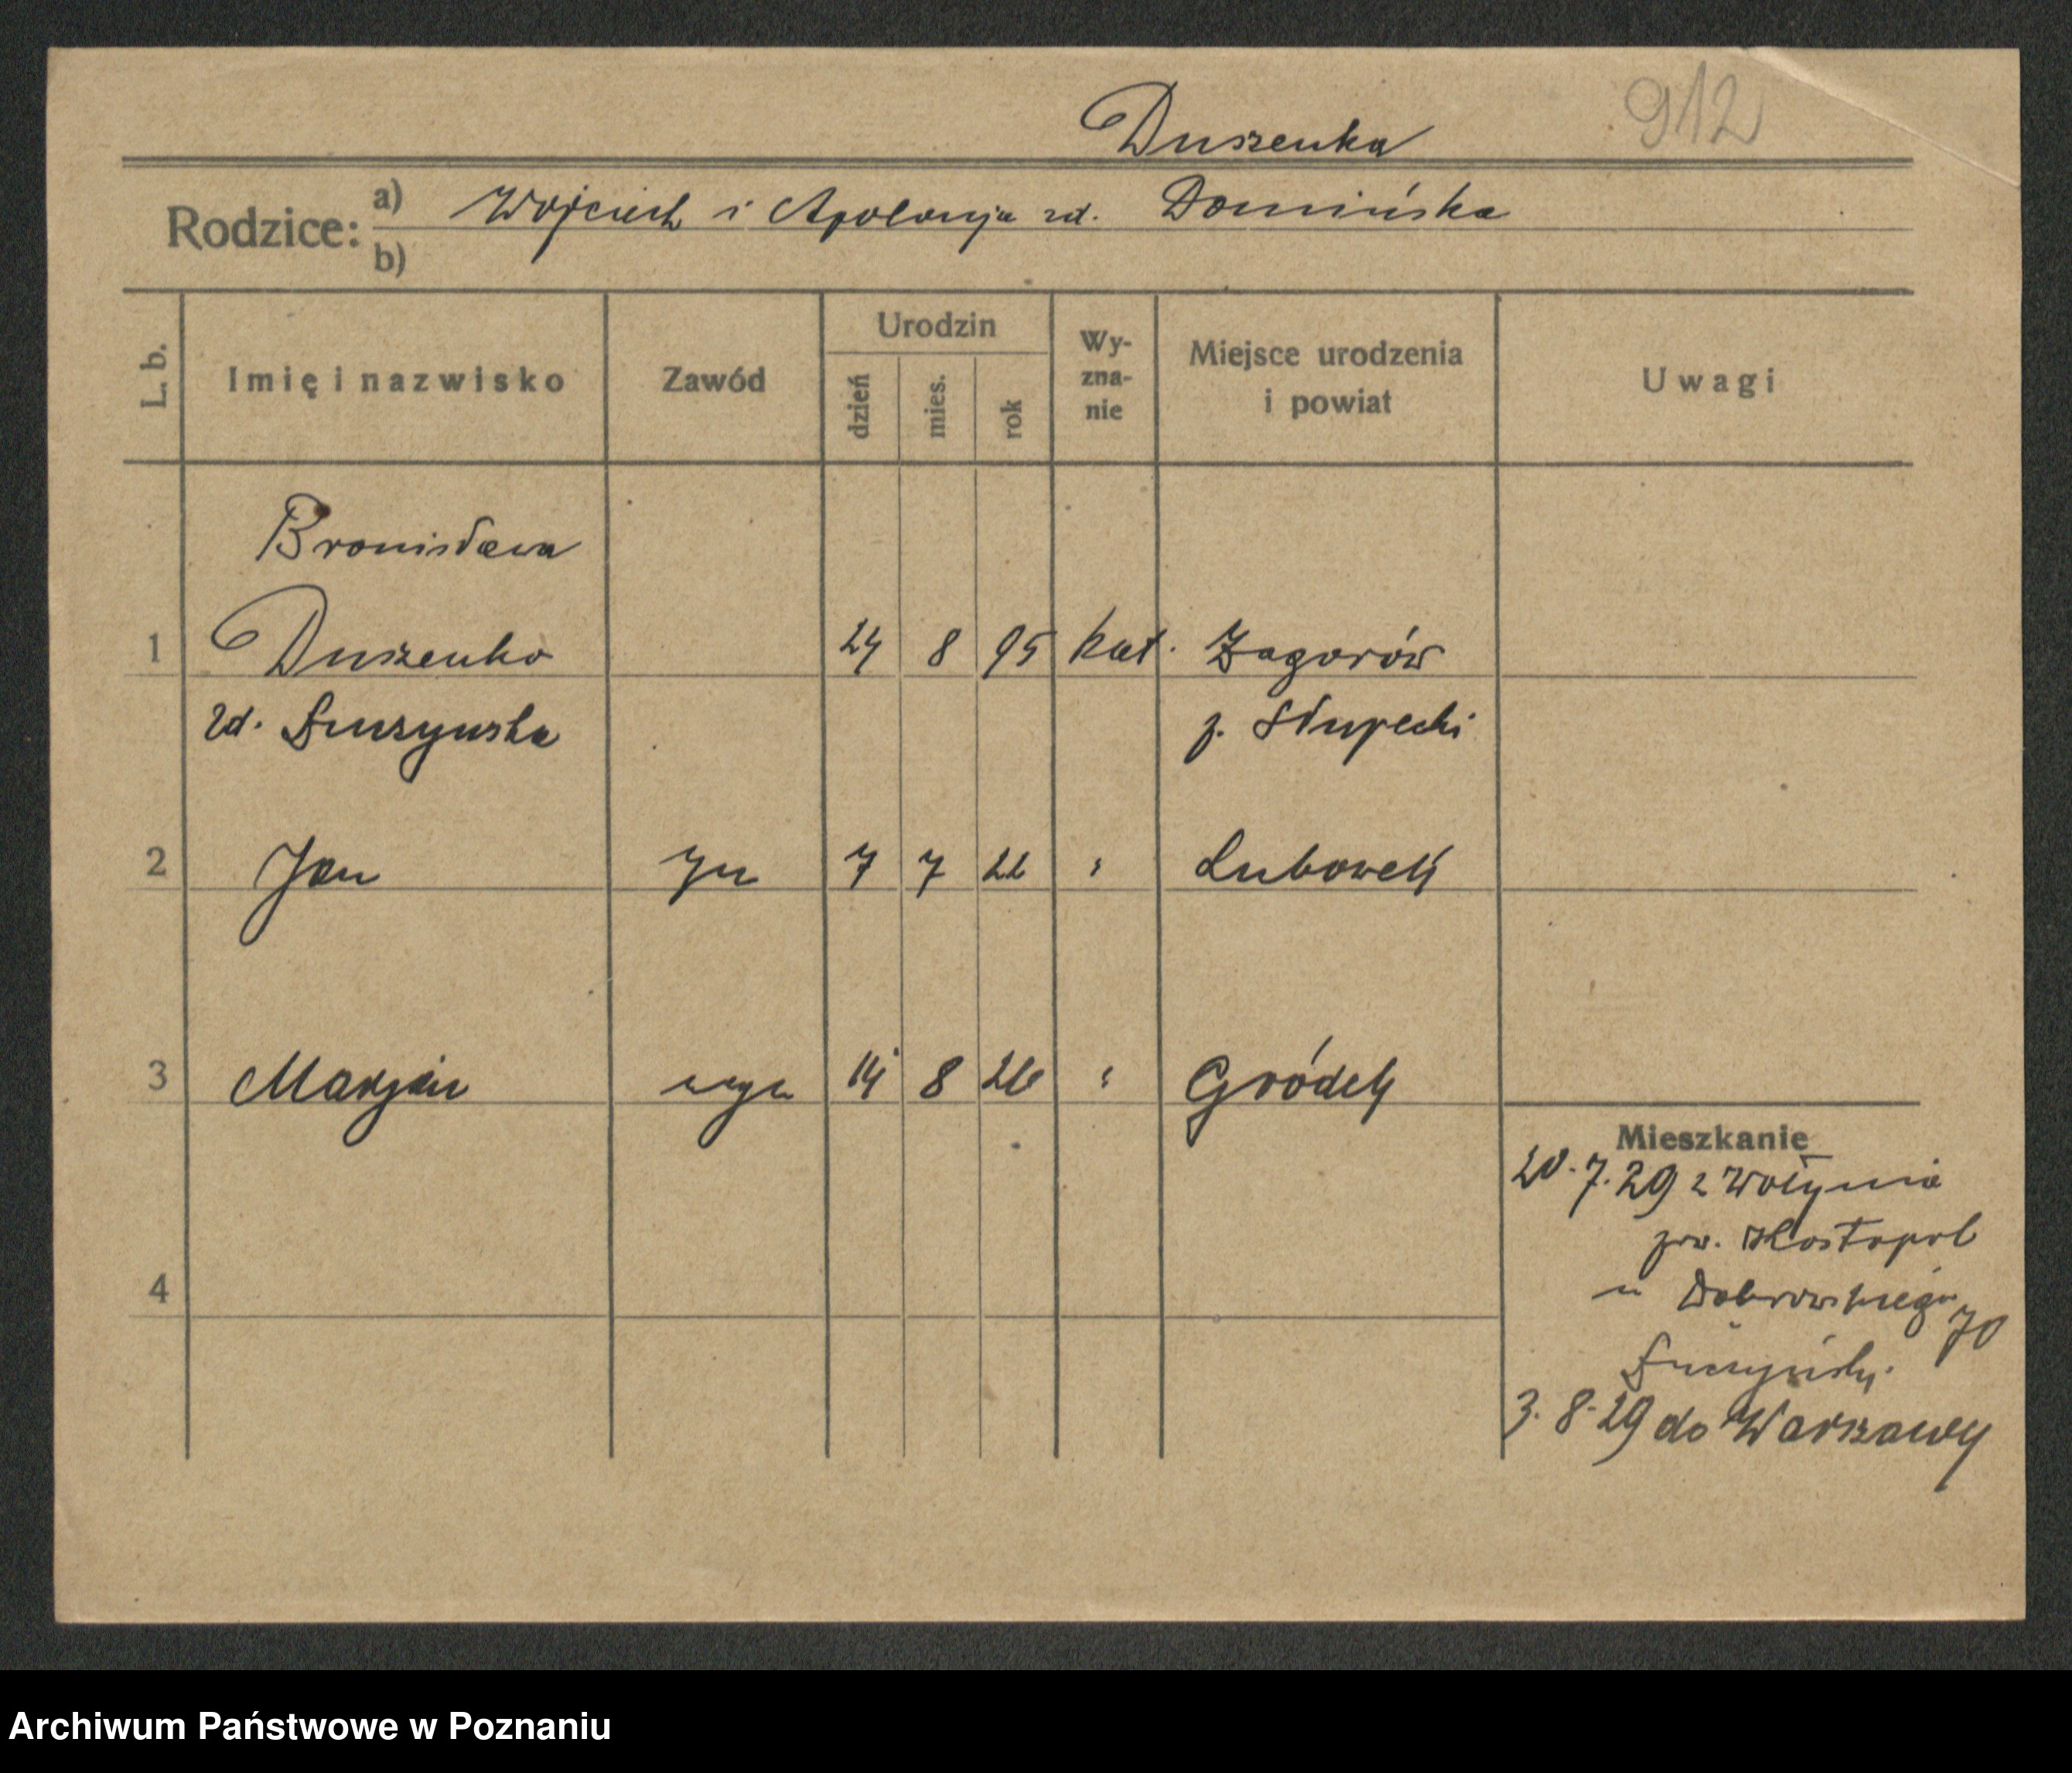 912
Duszenka
Rodzice: a) Wojciech i Apolonja zd. Domińska
b)
L. b. Imię i nazwisko Zawód Urodzin dzień mies. rok Wy-zna-nie Miejsce urodzenia i powiat Uwagi
Bronisława
1 Duszenko 24 8 95 kat. Zagorów
zd. Łuszynska p. Słupecki
2 Jan syn 7 7 22 " Lubowek
3 Marjan 14 8 26 " Gródek
Mieszkanie
20.7.29 z Wołynia
pow. Kostopol
u Dobrowskiego 70
4
3.8.29 do Warszawy
Archiwum Państwowe w Poznaniu